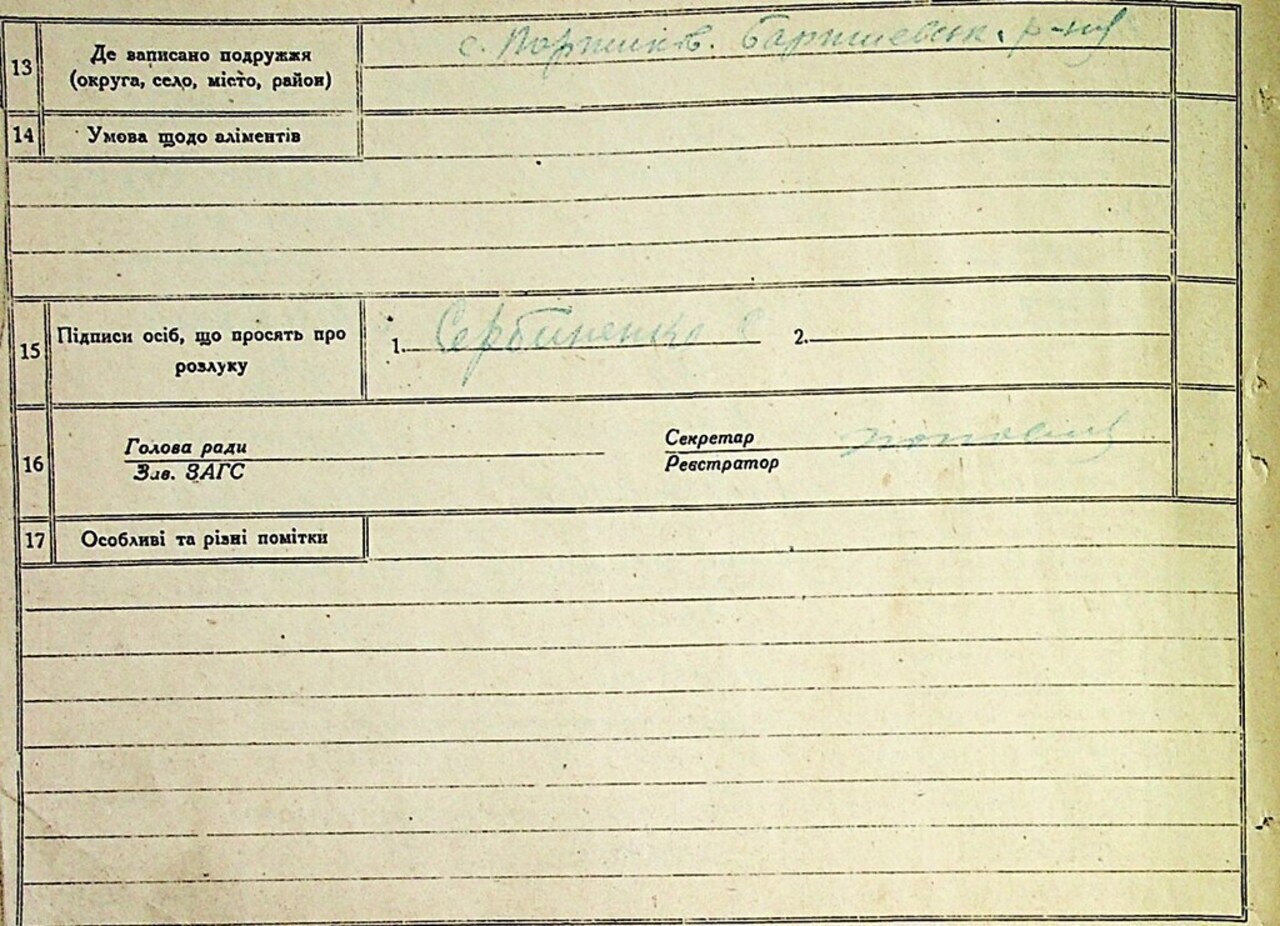 с. Баришевськ. р-ну
13 Де записано подружжя
(округа, село, місто, район)
14 Умова щодо аліментів
15 Підписи осіб, що просять про
розлуку
1. Сербиненко С 2.
16 Голова ради Секретар
Зав. ЗАГС Реєстратор
17 Особливі та різні помітки